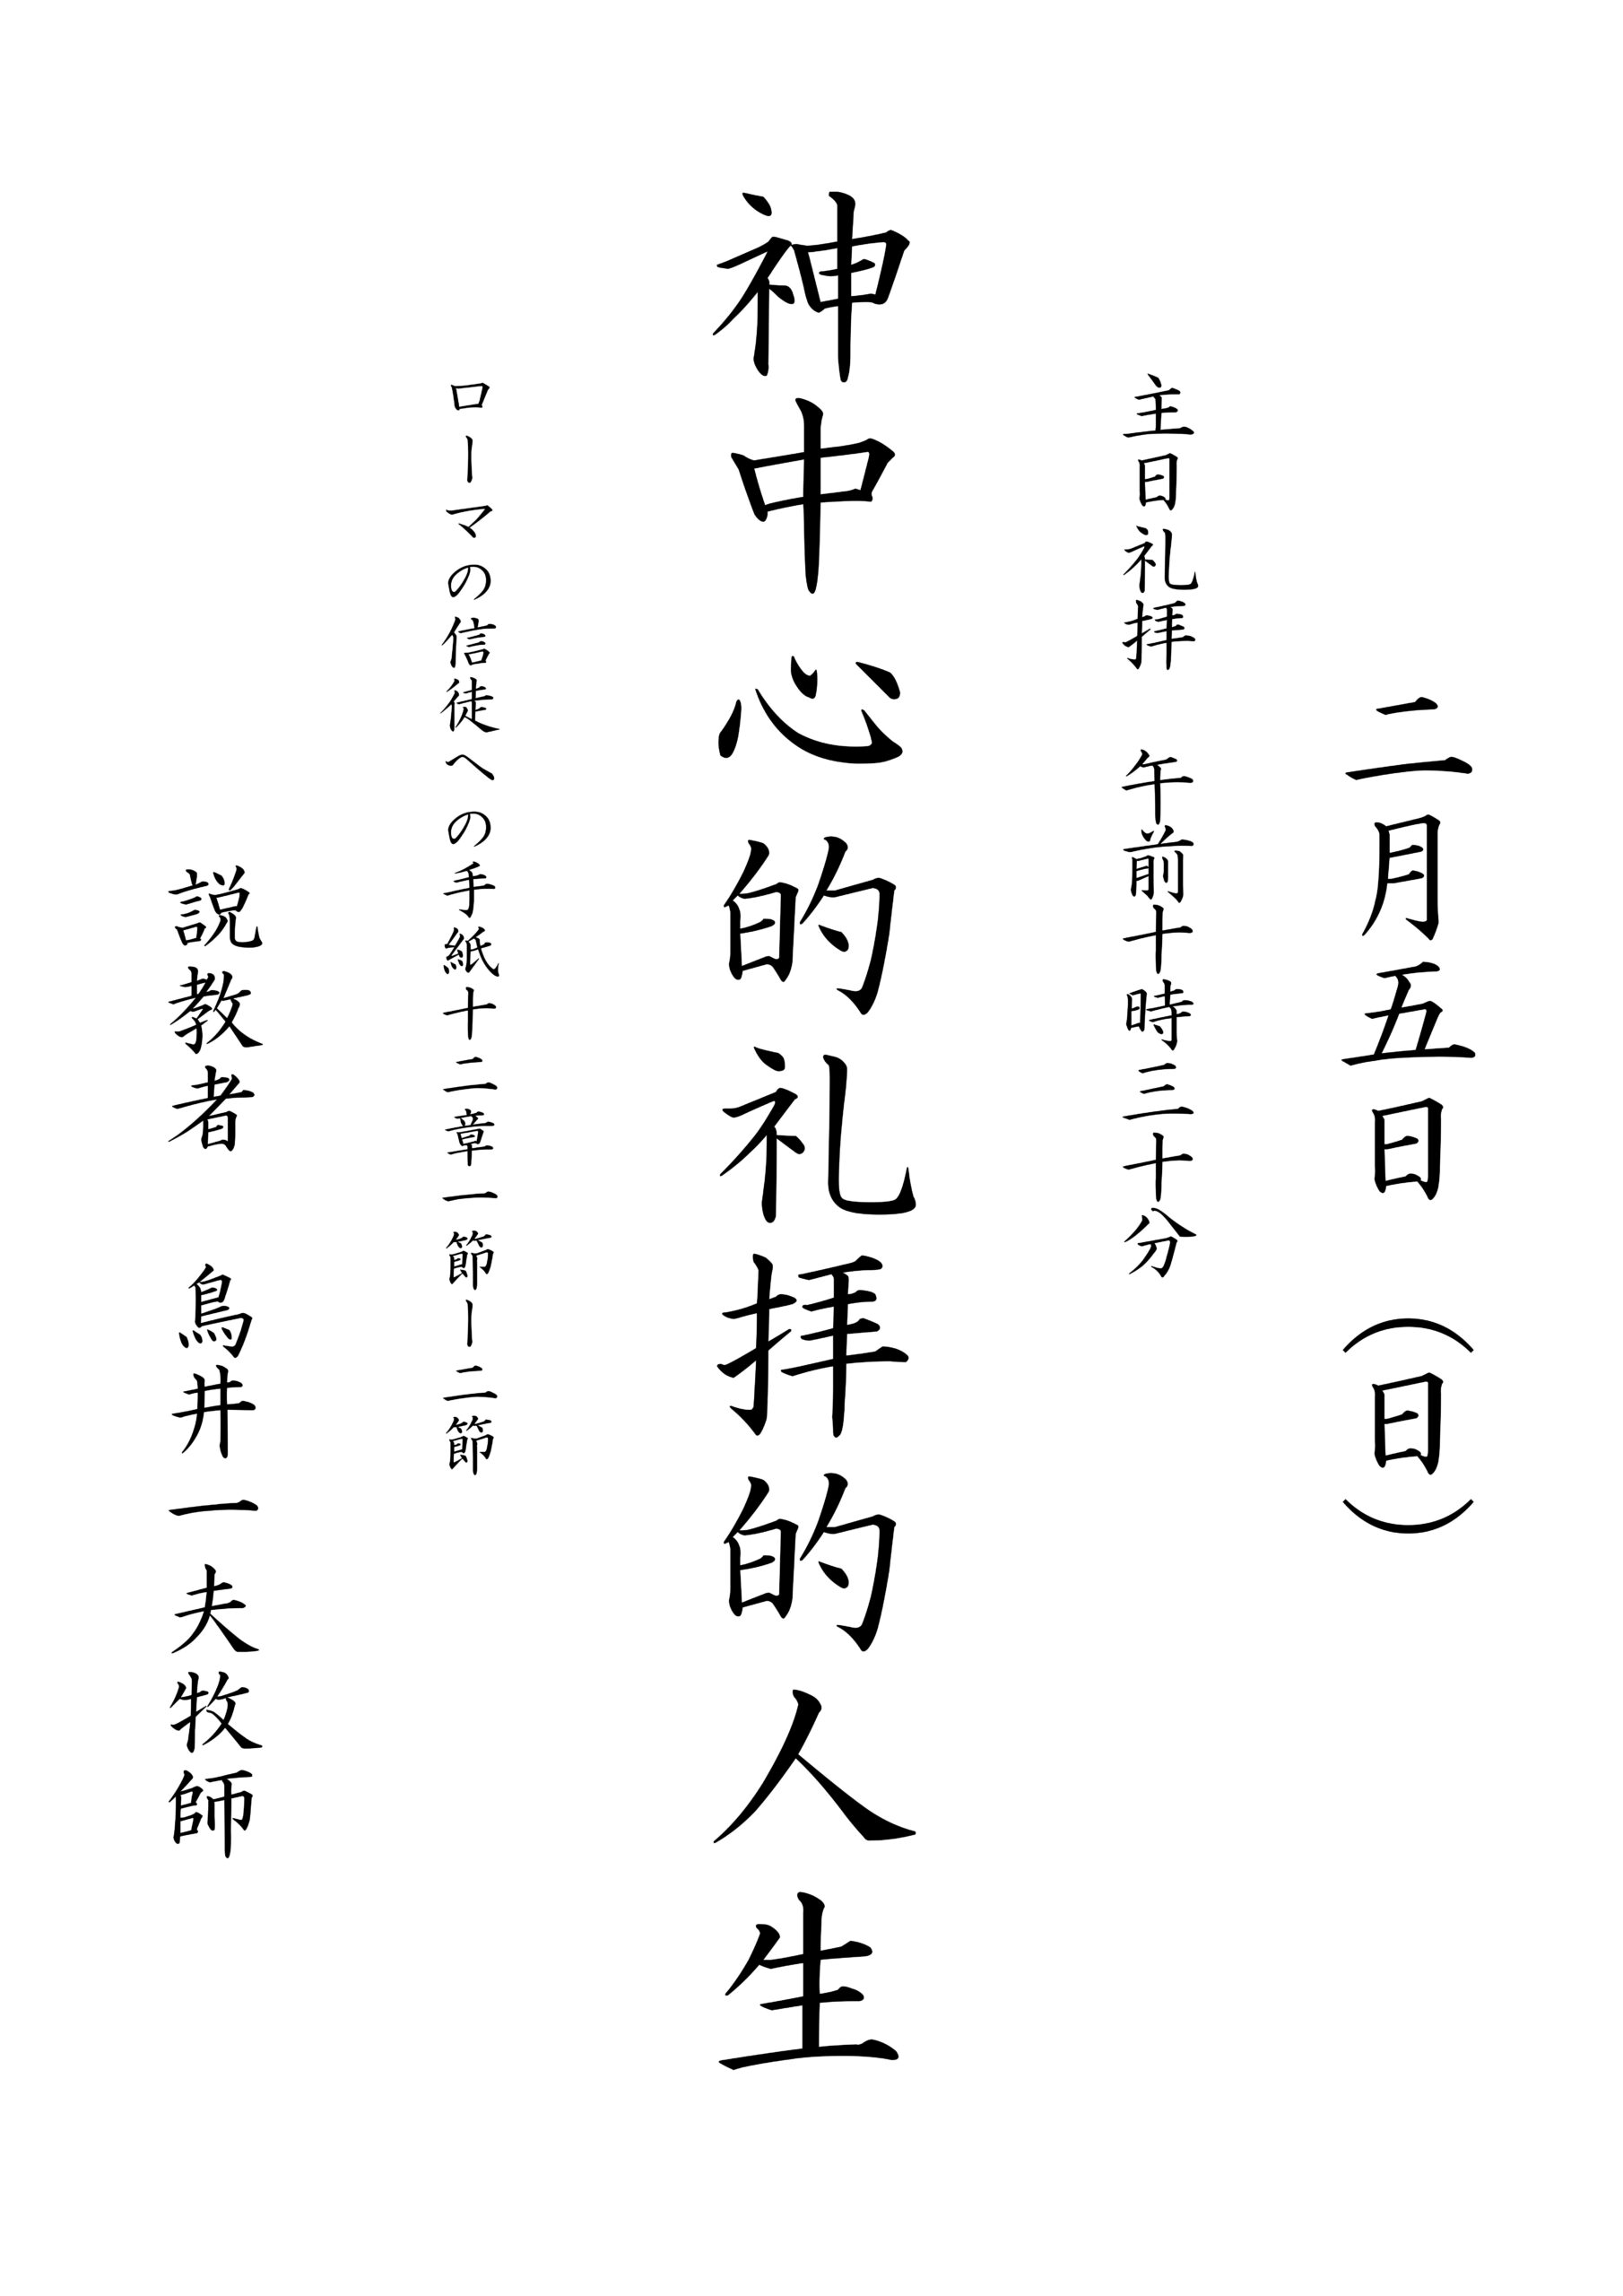 二月五日（日）
主日礼拝　午前十時三十分
神中心的礼拝的人生
ローマの信徒への手紙十二章一節ー二節
説教者　烏井一夫牧師